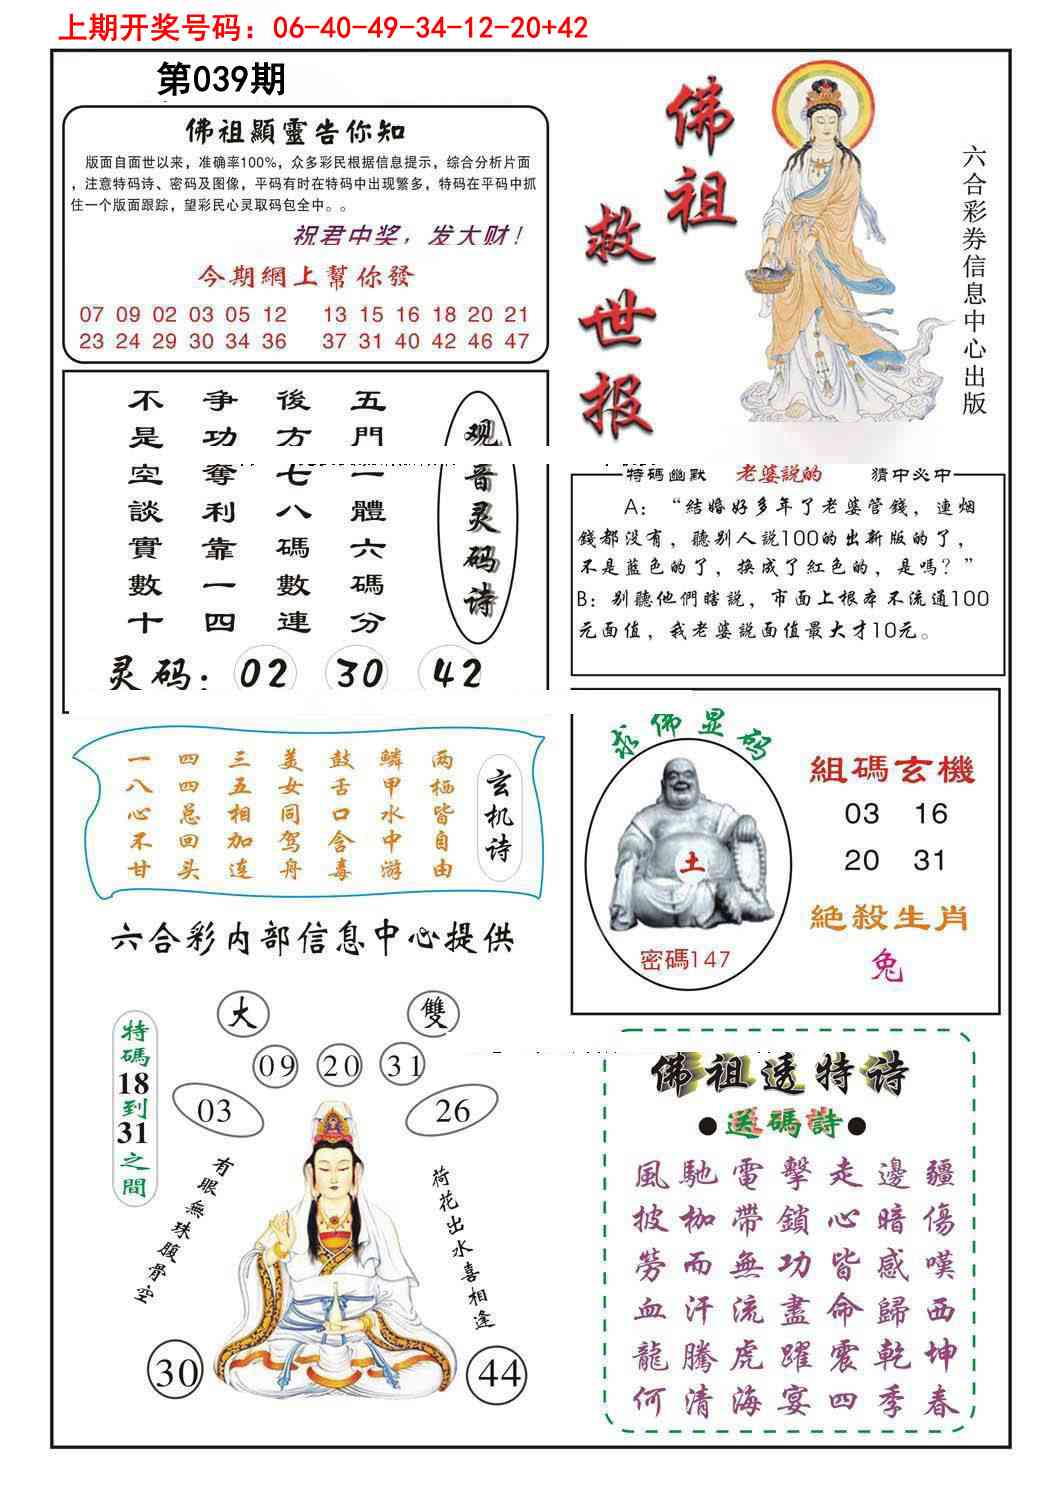 上期开奖号码：06-40-49-34-12-20+42
第039期
佛祖顯靈告你知
版面自面世以来，准确率100%，众多彩民根据信息提示，综合分析片面
，注意特码诗、密码及图像，平码有时在特码中出现繁多，特码在平码中抓
住一个版面跟踪，望彩民心灵取码包全中。。
祝君中奖，发大财！
今期網上幫你發
07 09 02 03 05 12 13 15 16 18 20 21
23 24 29 30 34 36 37 31 40 42 46 47
佛祖
救世报
六合彩券信息中心出版
观音灵码诗
五門一體六碼分
後方七八碼數連
争功奪利靠一四
不是空談實數十
灵码：02 30 42
特碼幽默 老婆説的 猜中必中
A：“結婚好多年了老婆管錢，連烟
錢都没有，聽别人説100的出新版的了，
不是藍色的了，换成了紅色的，是嗎？”
B：别聽他們瞎説，市面上根本不流通100
元面值，我老婆説面值最大才10元。
玄机诗
两栖皆自由
鳞甲水中游
鼓舌口含毒
美女同驾舟
三五相加连
四四总回头
一八心不甘
求佛显码
土
密碼147
組碼玄機
03 16
20 31
絕殺生肖
兔
六合彩内部信息中心提供
特碼18到31之間
大 雙
09 20 31
03 26
有眼無珠腹骨空
荷花出水喜相逢
30 44
佛祖透特诗
●送碼詩●
風馳電擊走邊疆
披枷帶鎖心暗傷
勞而無功皆感嘆
血汗流盡命歸西
龍騰虎躍震乾坤
何清海宴四季春